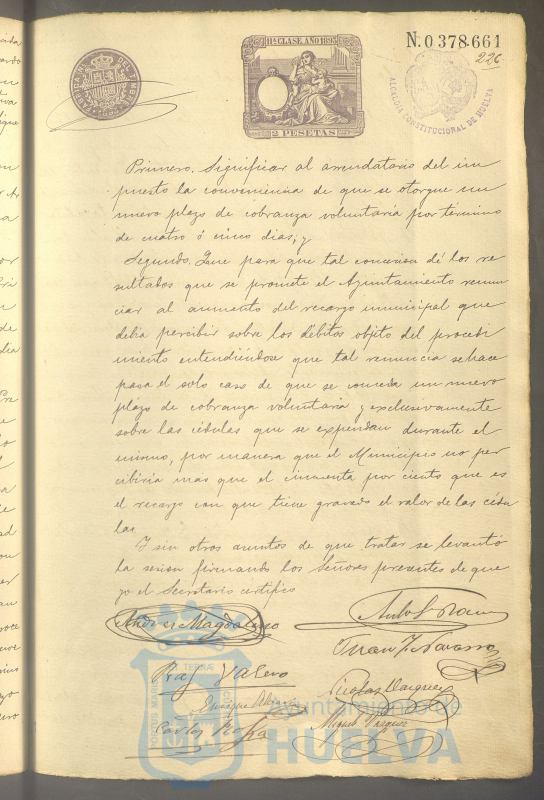 11ª CLASE. AÑO 1893
N. 0.378.661
226
2 PESETAS
ALCALDIA CONSTITUCIONAL DE HUELVA
Primero. Significar al arrendatario del im
puesto la conveniencia de que se otorgue un
nuevo plazo de cobranza voluntaria por término
de cuatro ó cinco dias, y
Segundo. Que para que tal concesion dé los re
sultados que se promete el Ayuntamiento renun
ciar al aumento del recargo municipal que
debia percibir sobre los débitos objeto del procedi
miento entendiéndose que tal renuncia se hace
para el solo caso de que se conceda un nuevo
plazo de cobranza voluntaria y exclusivamente
sobre las cédulas que se expendan durante el
mismo, por manera que el Municipio no per
cibiria mas que el cincuenta por ciento que es
el recargo con que tiene gravado el valor de las cédu
las.
Y sin otros asuntos de que tratar se levantó
la sesion firmando los Señores presentes de que
yo el Secretario certifico
Andres Magdaleno
Juan J. Navarro
Raf Valero
Nicolas Vazquez
Enrique
Miguel Vazquez
Carlos
PORTUS MARIS ET TERRAE CUSTODIA
ayuntamiento de
HUELVA